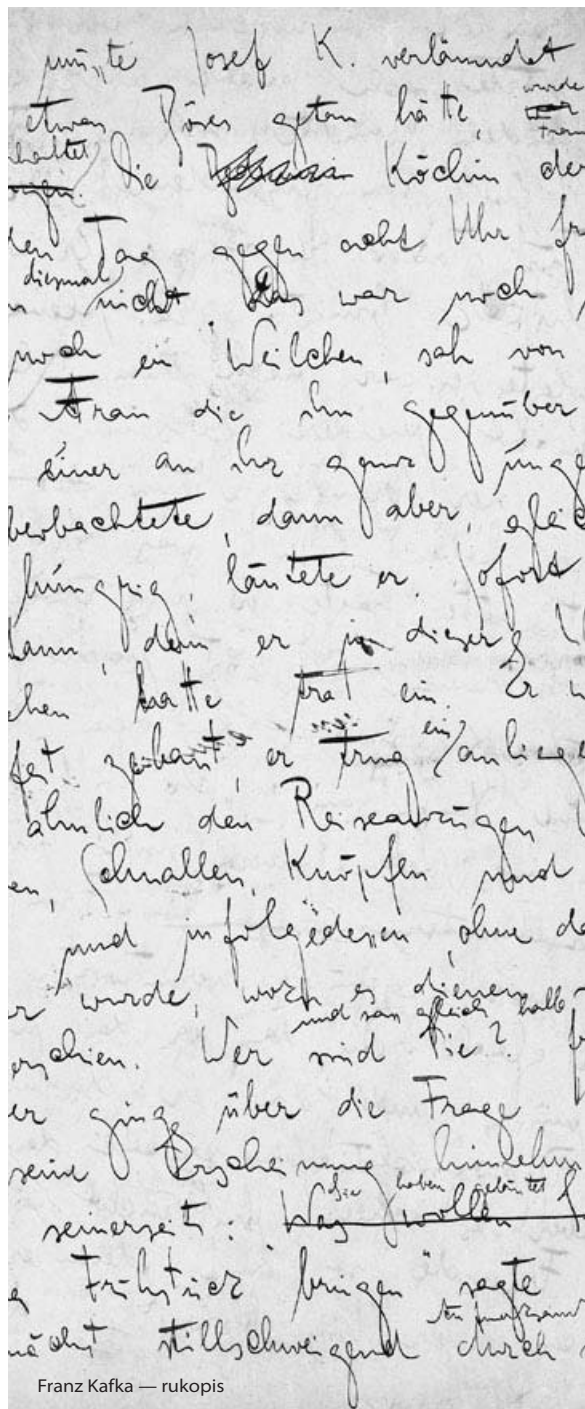 mußte Josef K. verläumdet
etwas Böses getan hätte, wurde
haftet Die Köchin der
den Tag gegen acht Uhr fr
diesmal
nicht Das war noch
noch ein Weilchen, sah von
Frau die ihm gegenüber
einer an ihr ganz unge
beobachtete, dann aber, gleic
hungrig, läutete er. Sofort
mann, den er in dieser
chen hatte trat ein. Er
fest gebaut, er trug ein anlieg
ähnlich den Reiseanzügen
en, Schnallen, Knöpfen und
und infolgedessen, ohne da
r wurde, wozu es dienen
und saß gleich halb
erschien. Wer sind Sie?
er ginge über die Frage
seine Erscheinung hinnehm
Sie haben geläutet
seinerseits: Was wollen
Frühstück bringen" sagte
nächst stillschweigend durch
Franz Kafka — rukopis